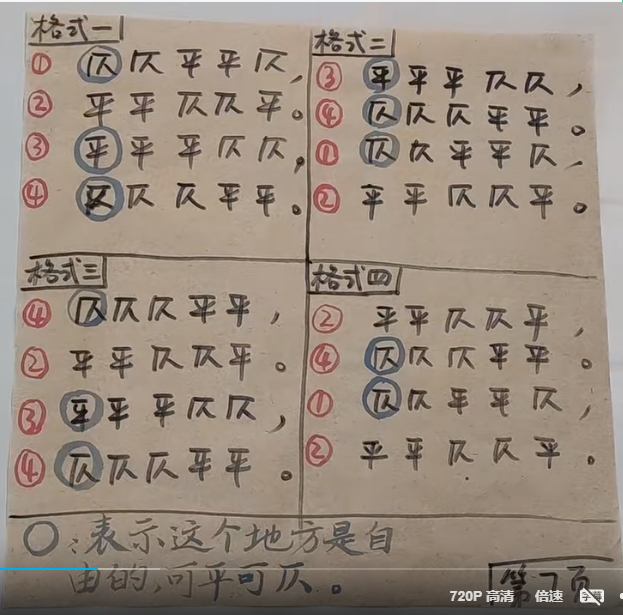 格式一
① 仄仄平平仄，
② 平平仄仄平。
③ 平平平仄仄，
④ 仄仄仄平平。
格式二
③ 平平平仄仄，
④ 仄仄仄平平。
① 仄仄平平仄，
② 平平仄仄平。
格式三
④ 仄仄仄平平，
② 平平仄仄平。
③ 平平平仄仄，
④ 仄仄仄平平。
格式四
② 平平仄仄平，
④ 仄仄仄平平。
① 仄仄平平仄，
② 平平仄仄平。
○：表示这个地方是自
由的，可平可仄。
第7页
720P 高清 倍速 字幕